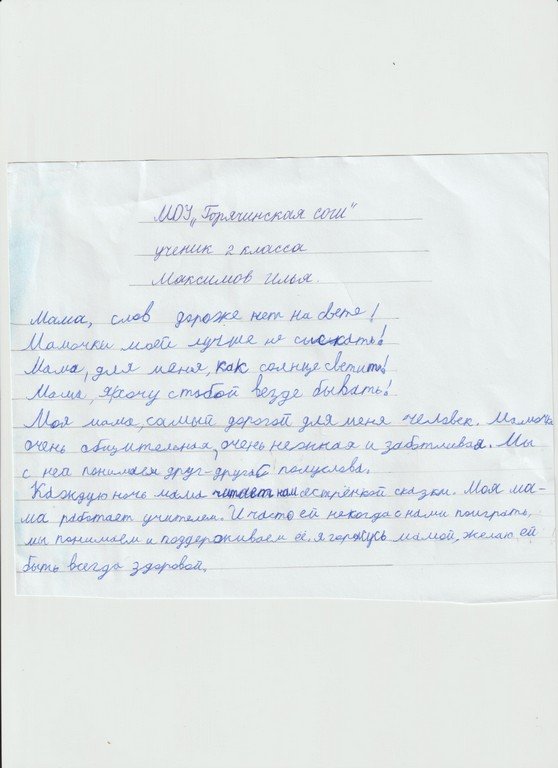 МОУ „Горячинская сош"
ученик 2 класса
Максимов Илья.
Мама, слов дороже нет на свете!
Мамочки моей лучше не сыскать!
Мама, для меня, как солнце светит!
Мама, я хочу с тобой везде бывать!
Моя мама, самый дорогой для меня человек. Мамочка
очень общительная, очень нежная и заботливая. Мы
с ней понимаем друг-друга с полуслова.
Каждую ночь мама читает нам с сестрёнкой сказки. Моя ма-
ма работает учителем. И часто ей некогда с нами поиграть,
мы понимаем и поддерживаем её. Я горжусь мамой, желаю ей
быть всегда здоровой.